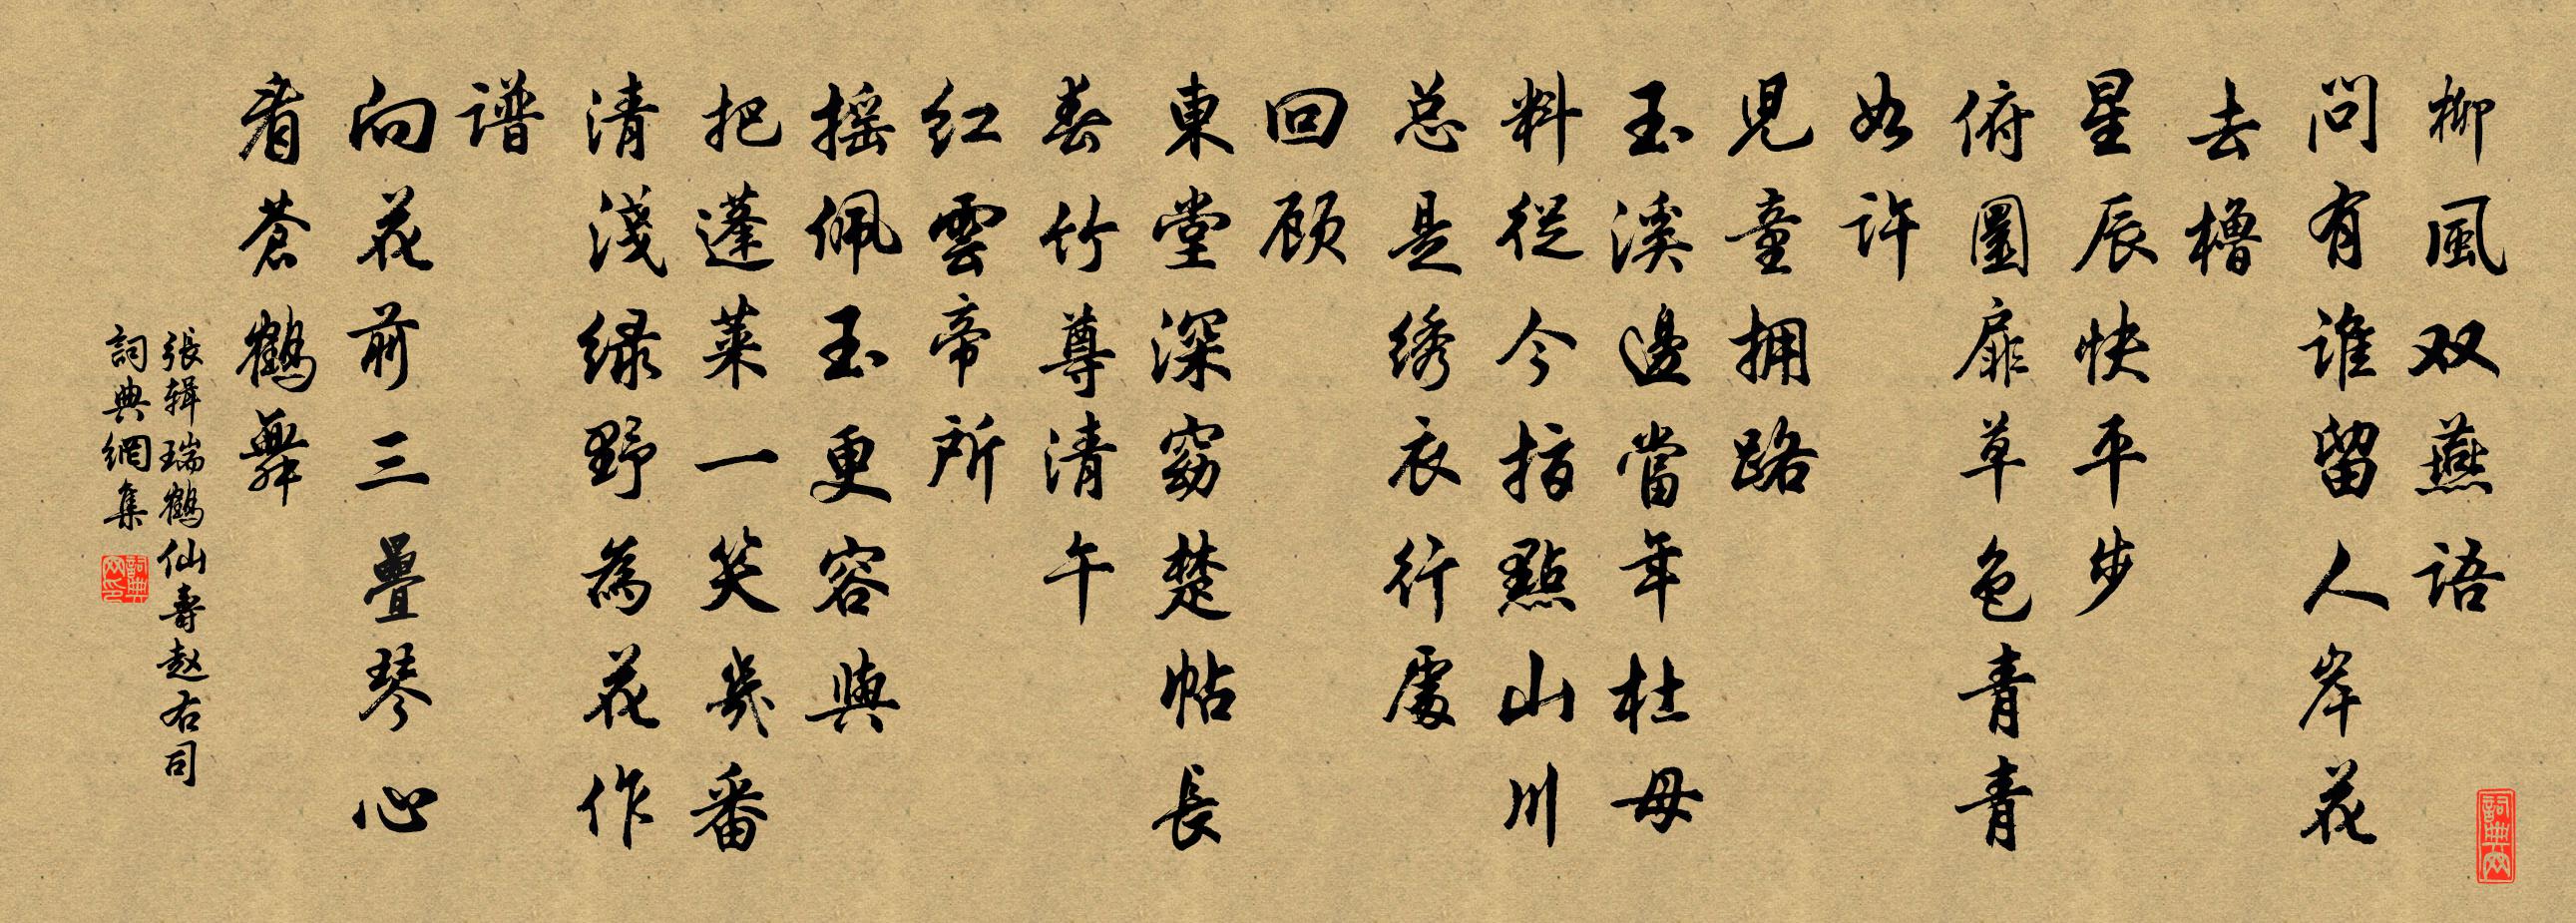 柳風双燕語
問有谁留人岸花
去櫓
星辰快平步
俯圜扉草色青青
如许
児童拥路
玉溪邊當年杜母
料従今指點山川
总是绣衣行處
回顾
東堂深窈楚帖長
春竹尊清午
红雲帝所
摇佩玉更容與
把蓬莱一笑幾番
清淺绿野為花作
谱
向花前三疊琴心
看蒼鶴舞
張辑瑞鶴仙壽赵右司
詞典網集
詞典网印
詞典网